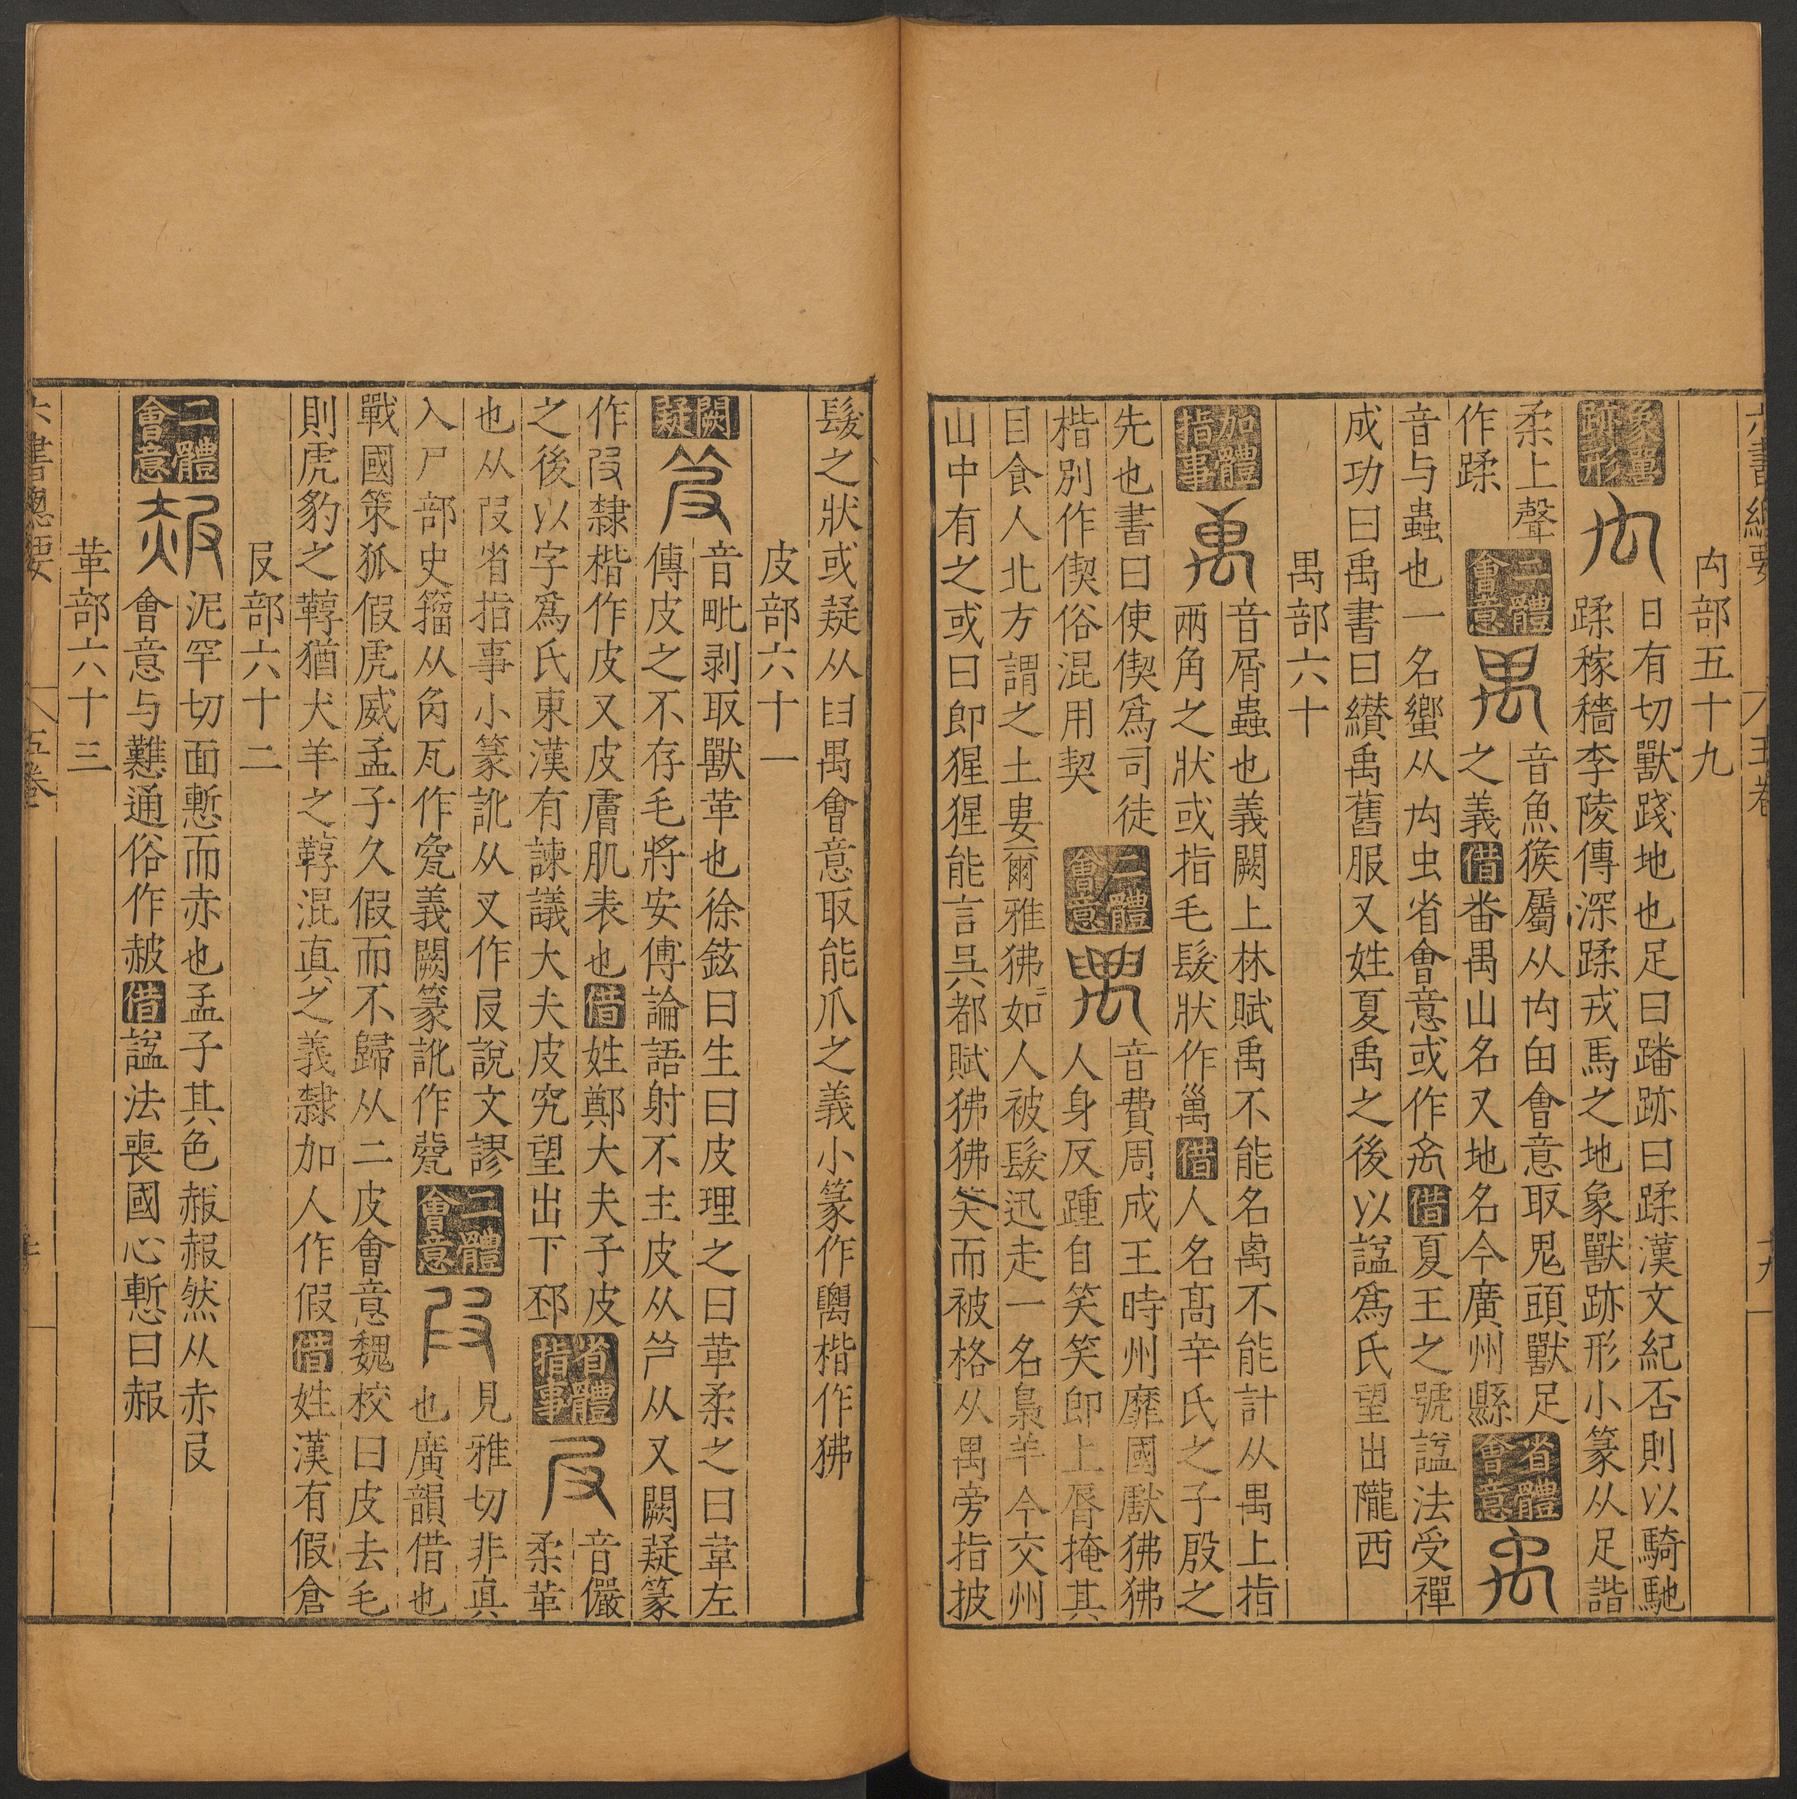 六書總要 五卷 十九
禸部五十九
象萬跡形 禸 日有切獸踐地也足曰蹯跡曰蹂漢文紀否則以騎馳
蹂稼穡李陵傳深蹂戎馬之地象獸跡形小篆从足諧
柔上聲
作蹂
二體會意 禺 音魚猴屬从禸甶會意取鬼頭獸足
之義借番禺山名又地名今廣州縣
省體會意 禹
音与蟲也一名蠁从禸虫省會意或作禼借夏王之號謚法受禪
成功曰禹書曰纘禹舊服又姓夏禹之後以謚爲氏望出隴西
禺部六十
加體指事 禼 音屑蟲也義闕上林賦禹不能名禼不能計从禺上指
兩角之狀或指毛髮狀作䙳借人名髙辛氏之子殷之
先也書曰使偰爲司徒
楷別作偰俗混用契
二體會意 𥝋 音費周成王時州靡國獻狒狒
人身反踵自笑笑即上脣掩其
目食人北方謂之土婁爾雅狒狒如人被髮迅走一名梟羊今交州
山中有之或曰即猩猩能言吳都賦狒狒笑而被格从禺旁指披
髮之狀或疑从𦥑禺會意取能爪之義小篆作𥜿楷作狒
皮部六十一
闕疑 皮 音毗剥取獸革也徐鉉曰生曰皮理之曰革柔之曰韋左
傳皮之不存毛將安傅論語射不主皮从𥫗从又闕疑篆
作叚隸楷作皮又皮膚肌表也借姓鄭大夫子皮
之後以字爲氏東漢有諫議大夫皮究望出下邳
省體指事 𠬝 音儼
柔革
也从叚省指事小篆訛从又作𠬝說文謬
入尸部史籀从角瓦作㼱義闕篆訛作㼱
二體會意 叚 見雅切非真
也廣韻借也
戰國策狐假虎威孟子久假而不歸从二皮會意魏校曰皮去毛
則虎豹之鞹猶犬羊之鞹混真之義隸加人作假借姓漢有假倉
𠬝部六十二
二體會意 赧 泥罕切面慙而赤也孟子其色赧赧然从赤𠬝
會意与戁通俗作赧借謚法喪國心慙曰赧
革部六十三
六書總要 五卷